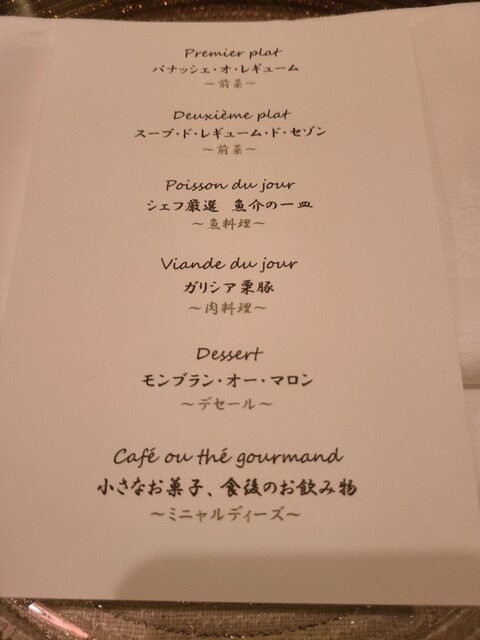 Premier plat
パナッシェ・オ・レギューム
～前菜～
Deuxième plat
スープ・ド・レギューム・ド・セゾン
～前菜～
Poisson du jour
シェフ厳選 魚介の一皿
～魚料理～
Viande du jour
ガリシア栗豚
～肉料理～
Dessert
モンブラン・オー・マロン
～デセール～
Café ou thé gourmand
小さなお菓子、食後のお飲み物
～ミニャルディーズ～